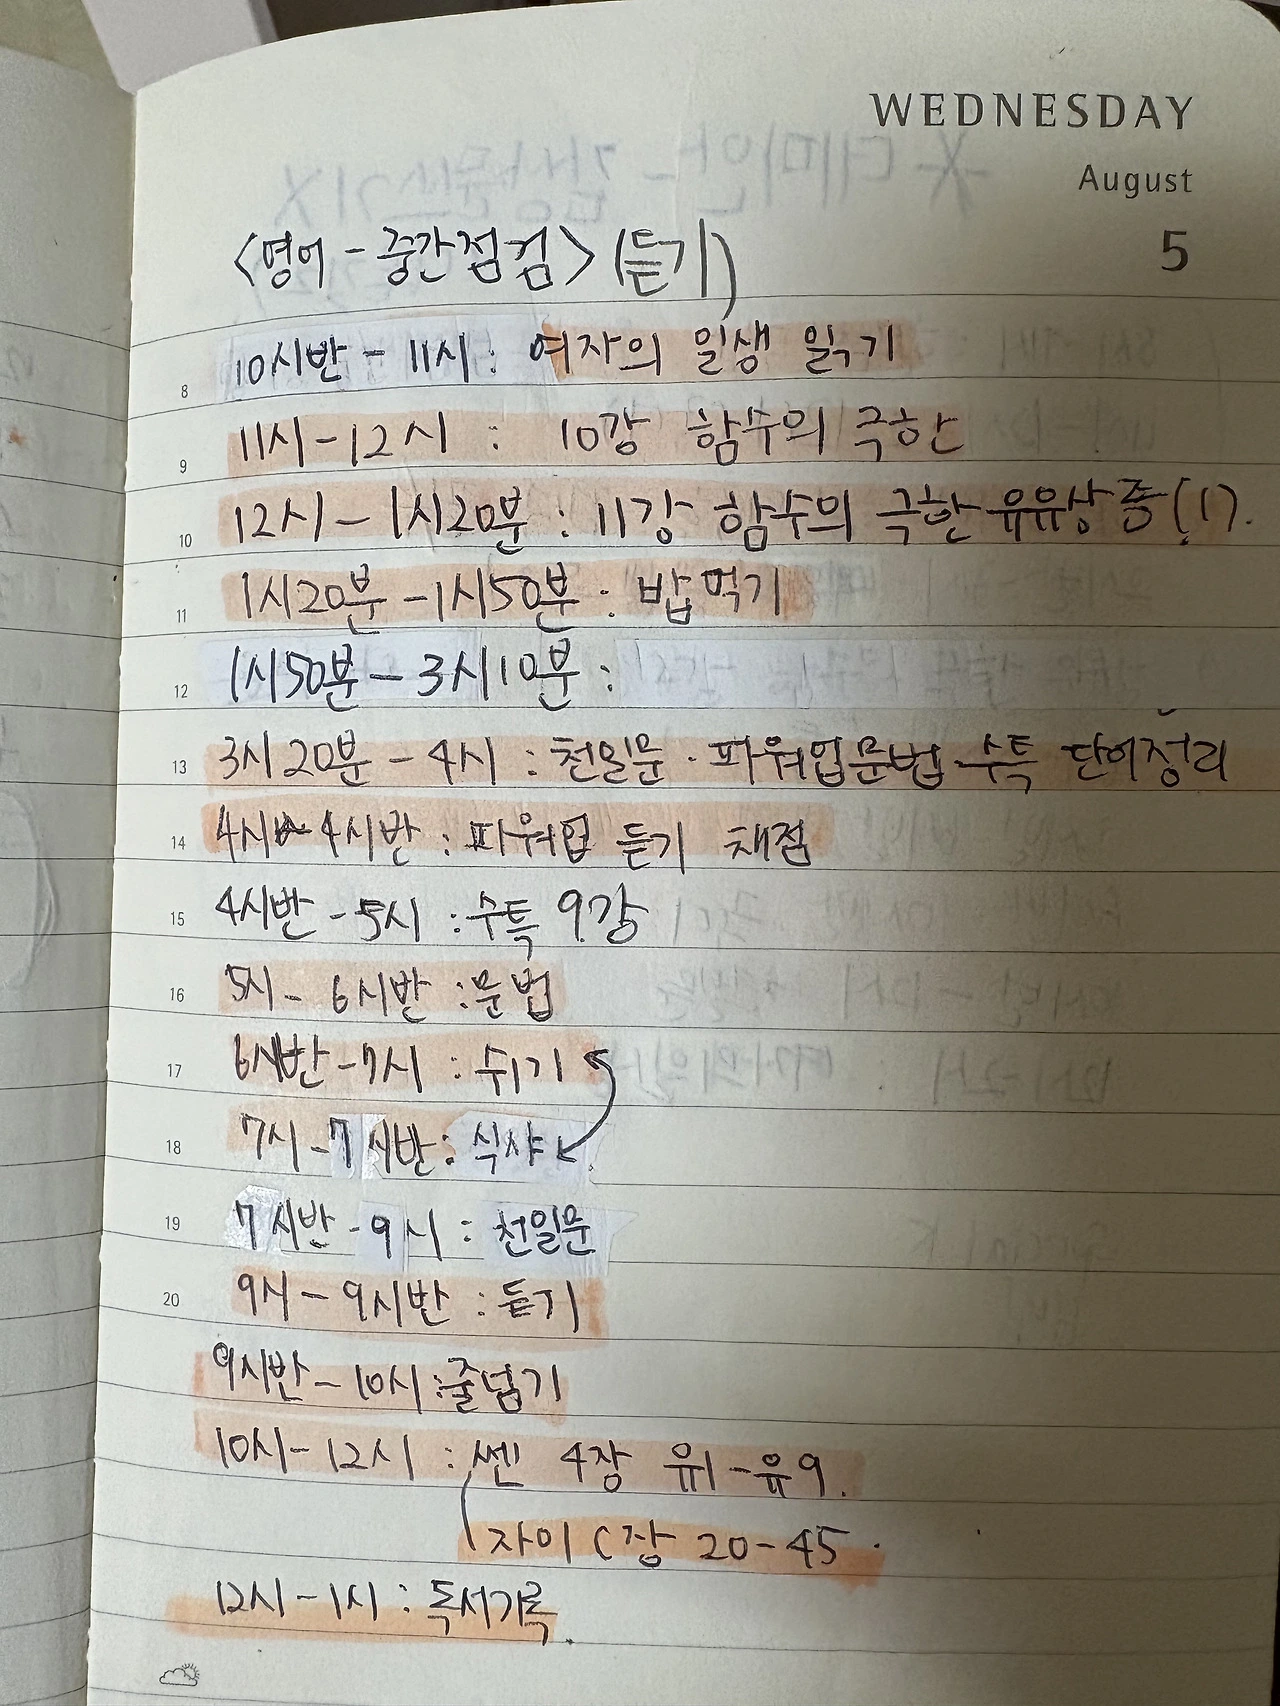 WEDNESDAY
August
5
<영어 - 중간점검> (듣기)
10시반 - 11시 : 여자의 일생 읽기
8
11시 - 12시 : 10강 함수의 극한
9
12시 - 1시20분 : 11강 함수의 극한 유유상종(1).
10
1시20분 - 1시50분 : 밥먹기
11
1시50분 - 3시10분 :
12
3시20분 - 4시 : 천일문 · 파워업문법 수특 단어정리
13
4시 - 4시반 : 파워업 듣기 채점
14
4시반 - 5시 : 수특 9강
15
5시 - 6시반 : 문법
16
6시반 - 7시 : 쉬기
17
7시 - 7시반 : 식사
18
7시반 - 9시 : 천일문
19
9시 - 9시반 : 듣기
20
9시반 - 10시 : 줄넘기
10시 - 12시 : 쎈 4장 유1 - 유9.
자이 C장 20 - 45.
12시 - 1시 : 독서기록